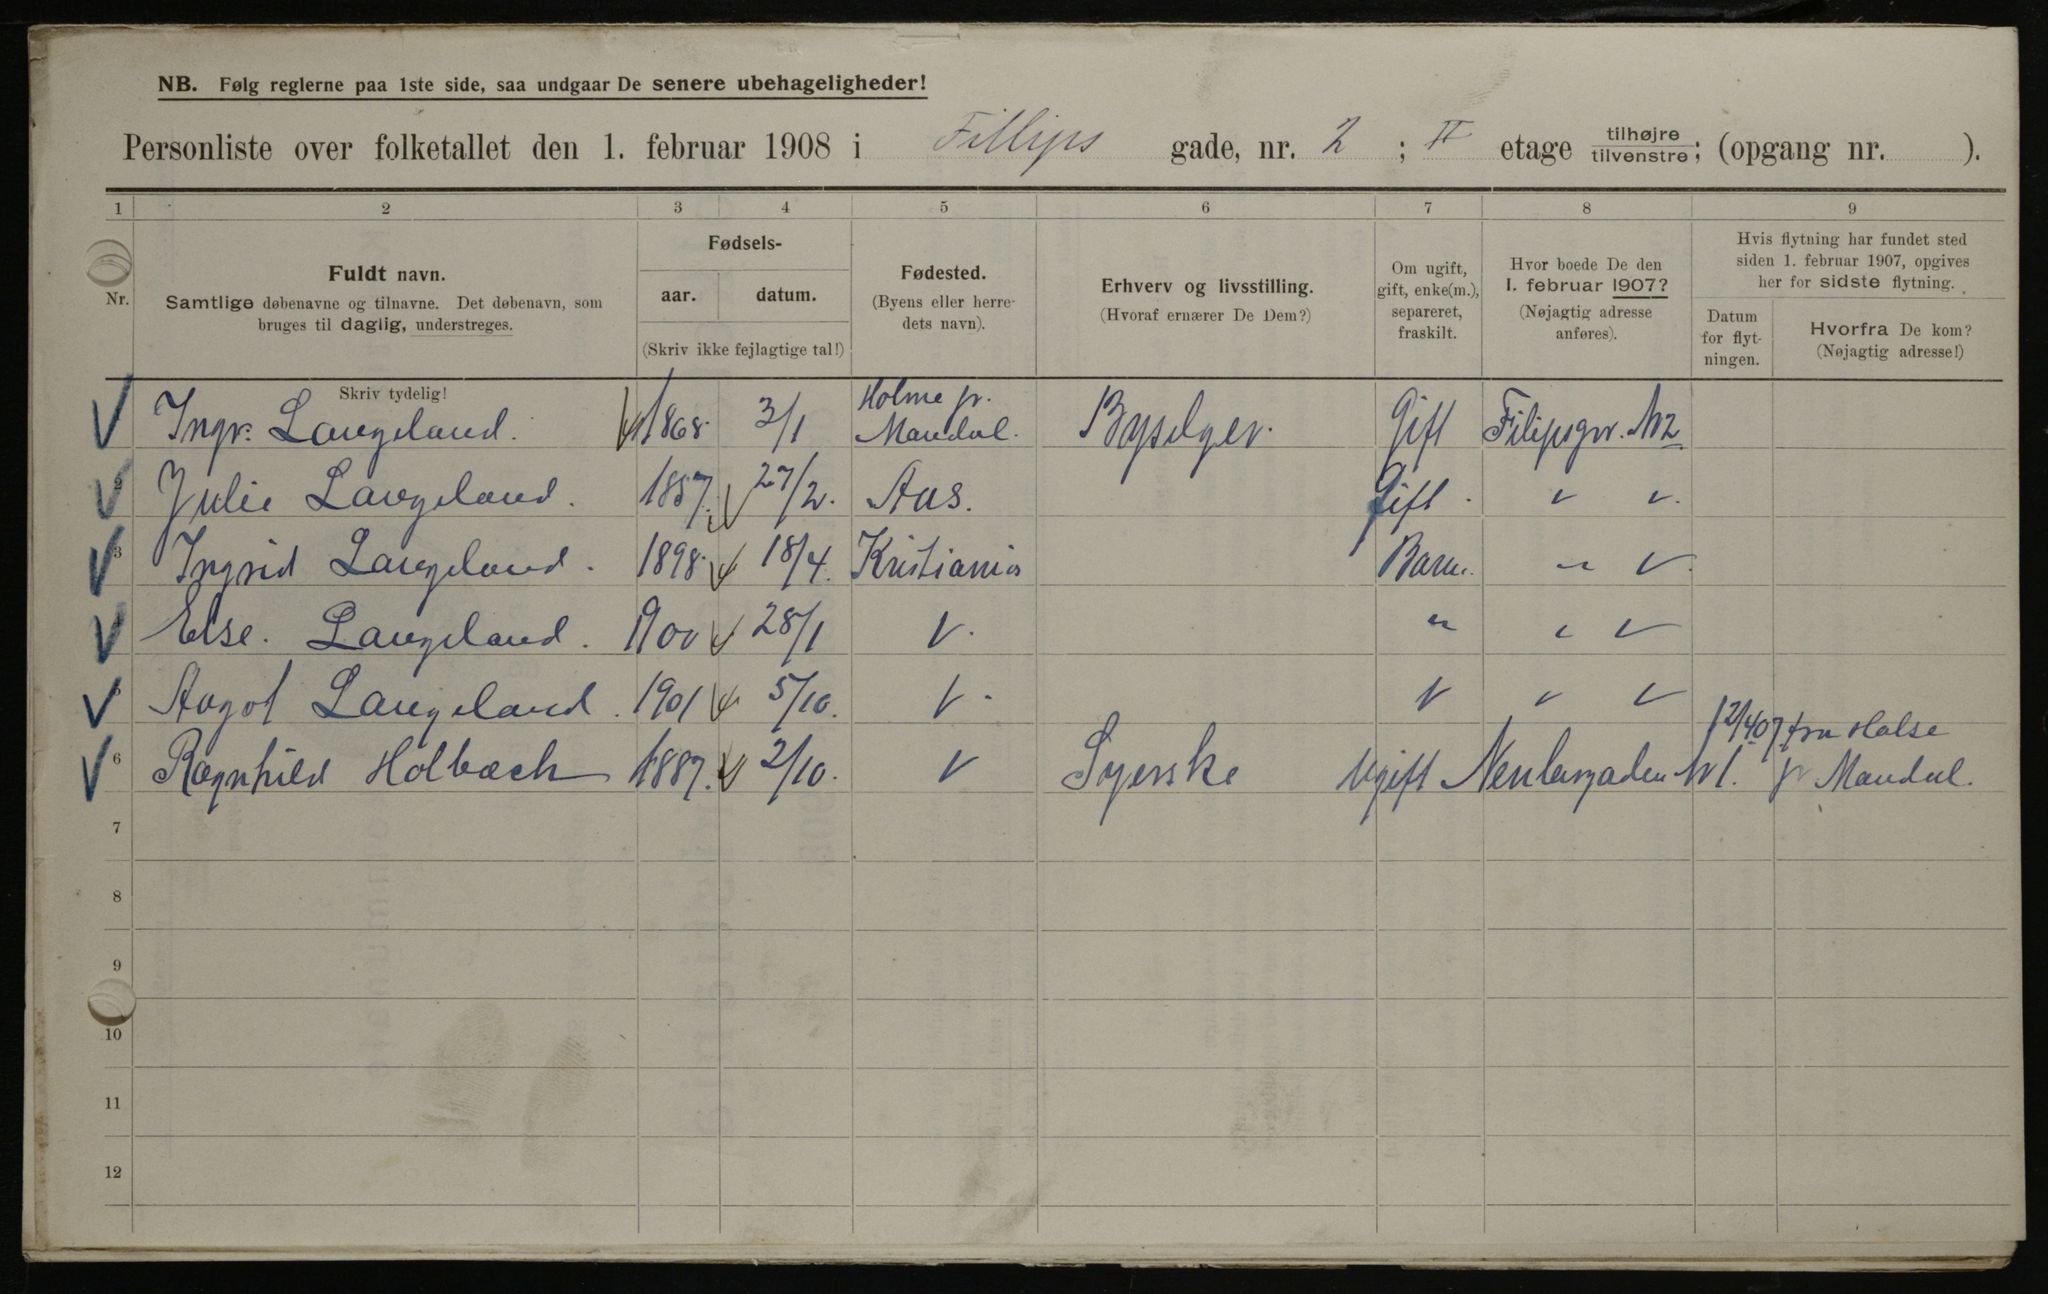 NB. Følg reglerne paa 1ste side, saa undgaar De senere ubehageligheder!
Personliste over folketallet den 1. februar 1908 i Fillips gade, nr. 2 ; II etage tilhøjre tilvenstre; (opgang nr. ).
1 2 3 4 5 6 7 8 9
Nr.
Fuldt navn.
Samtlige døbenavne og tilnavne. Det døbenavn, som
bruges til daglig, understreges.
Skriv tydelig!
Fødsels-
aar. datum.
(Skriv ikke fejlagtige tal!)
Fødested.
(Byens eller herre-
dets navn).
Erhverv og livsstilling.
(Hvoraf ernærer De Dem?)
Om ugift,
gift, enke(m.),
separeret,
fraskilt.
Hvor boede De den
1. februar 1907?
(Nøjagtig adresse
anføres).
Hvis flytning har fundet sted
siden 1. februar 1907, opgives
her for sidste flytning.
Datum
for flyt-
ningen.
Hvorfra De kom?
(Nøjagtig adresse!)
Ingv. Langeland. 1868. 3/1 Holme pr. Mandal. Gift Filipsgr. N2
2 Julie Langeland. 1857. 27/2. Aas. Gift. " "
3 Ingrid Langeland. 1898. 18/4. Kristiania Barn. " "
Else. Langeland. 1900 28/1 " " " "
5 Aagot Langeland. 1901 5/10. " " " "
6 Ragnhild Holbæch 1887. 2/10. " Syerske Ugift N 1. 12/4 07 fra Halse pr Mandal.
7
8
9
10
11
12